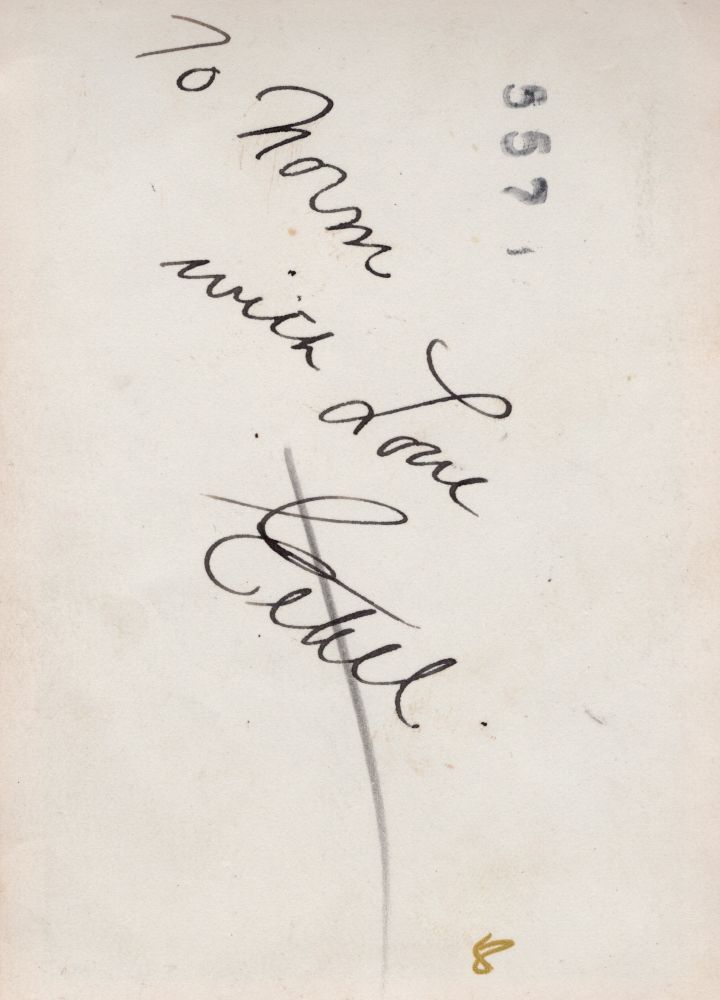 To Norm
with Love
Ethel.
5571
8